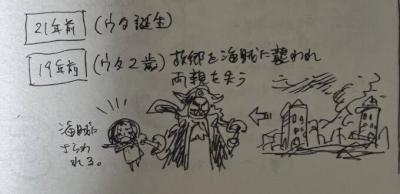 21年前 (ウタ誕生)
19年前 (ウタ2歳) 故郷を海賊に襲われ
両親を失う
海賊に
さらわ
れる。